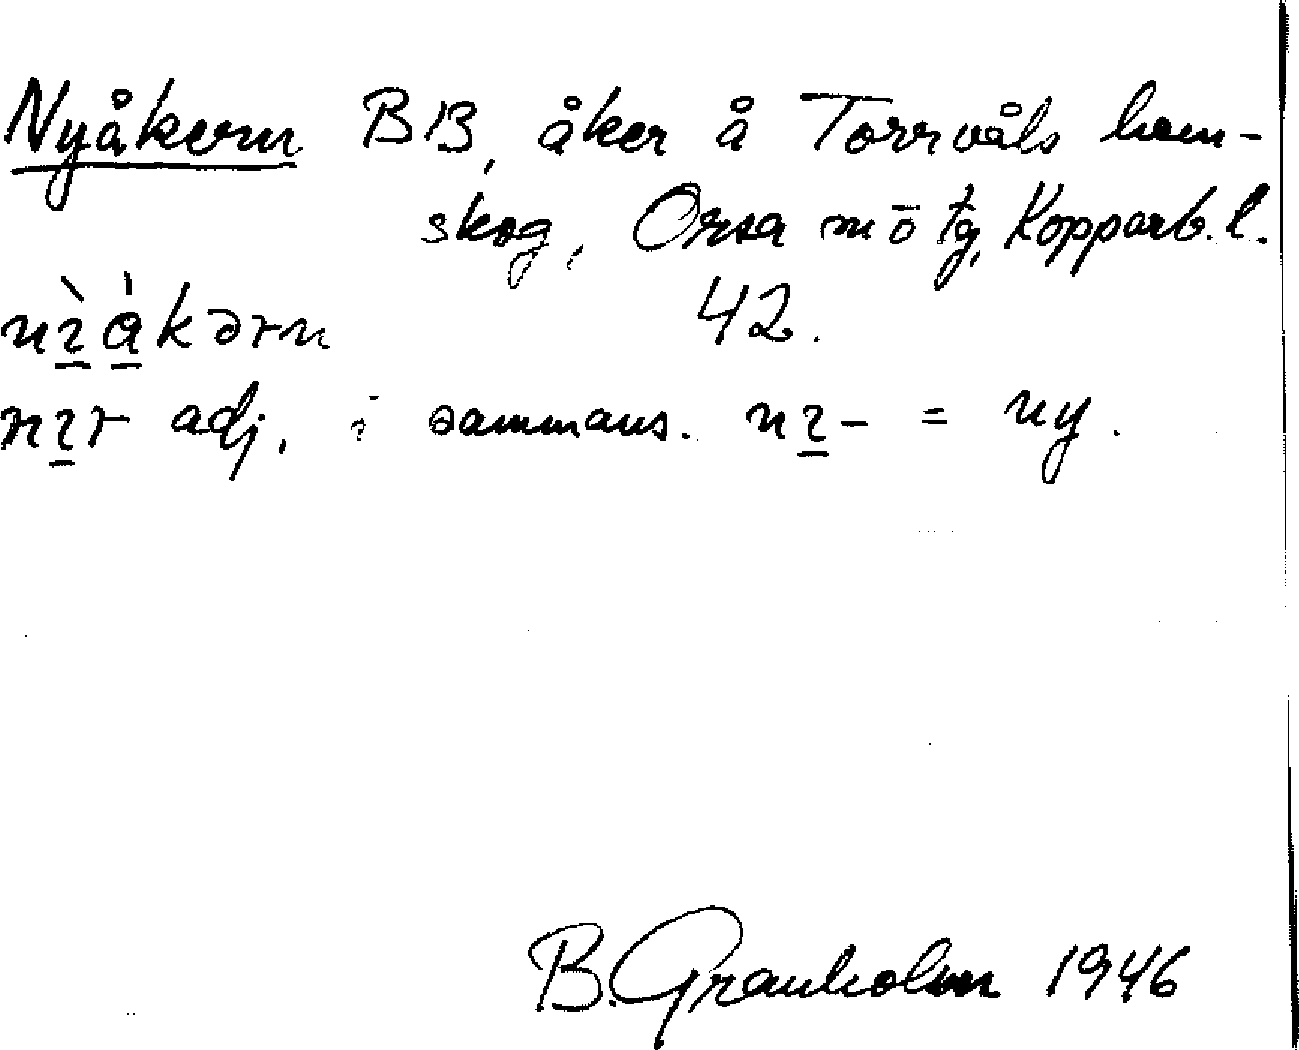 Nyåkern BB, åker å Torrvåls hem-
skog, Orsa mō tg, Kopparb. l.
nɪ̠̀ǻ̠kərn 42.
nɪ̠r adj. i sammans. nɪ̠- = ny.
B. Granholm 1946